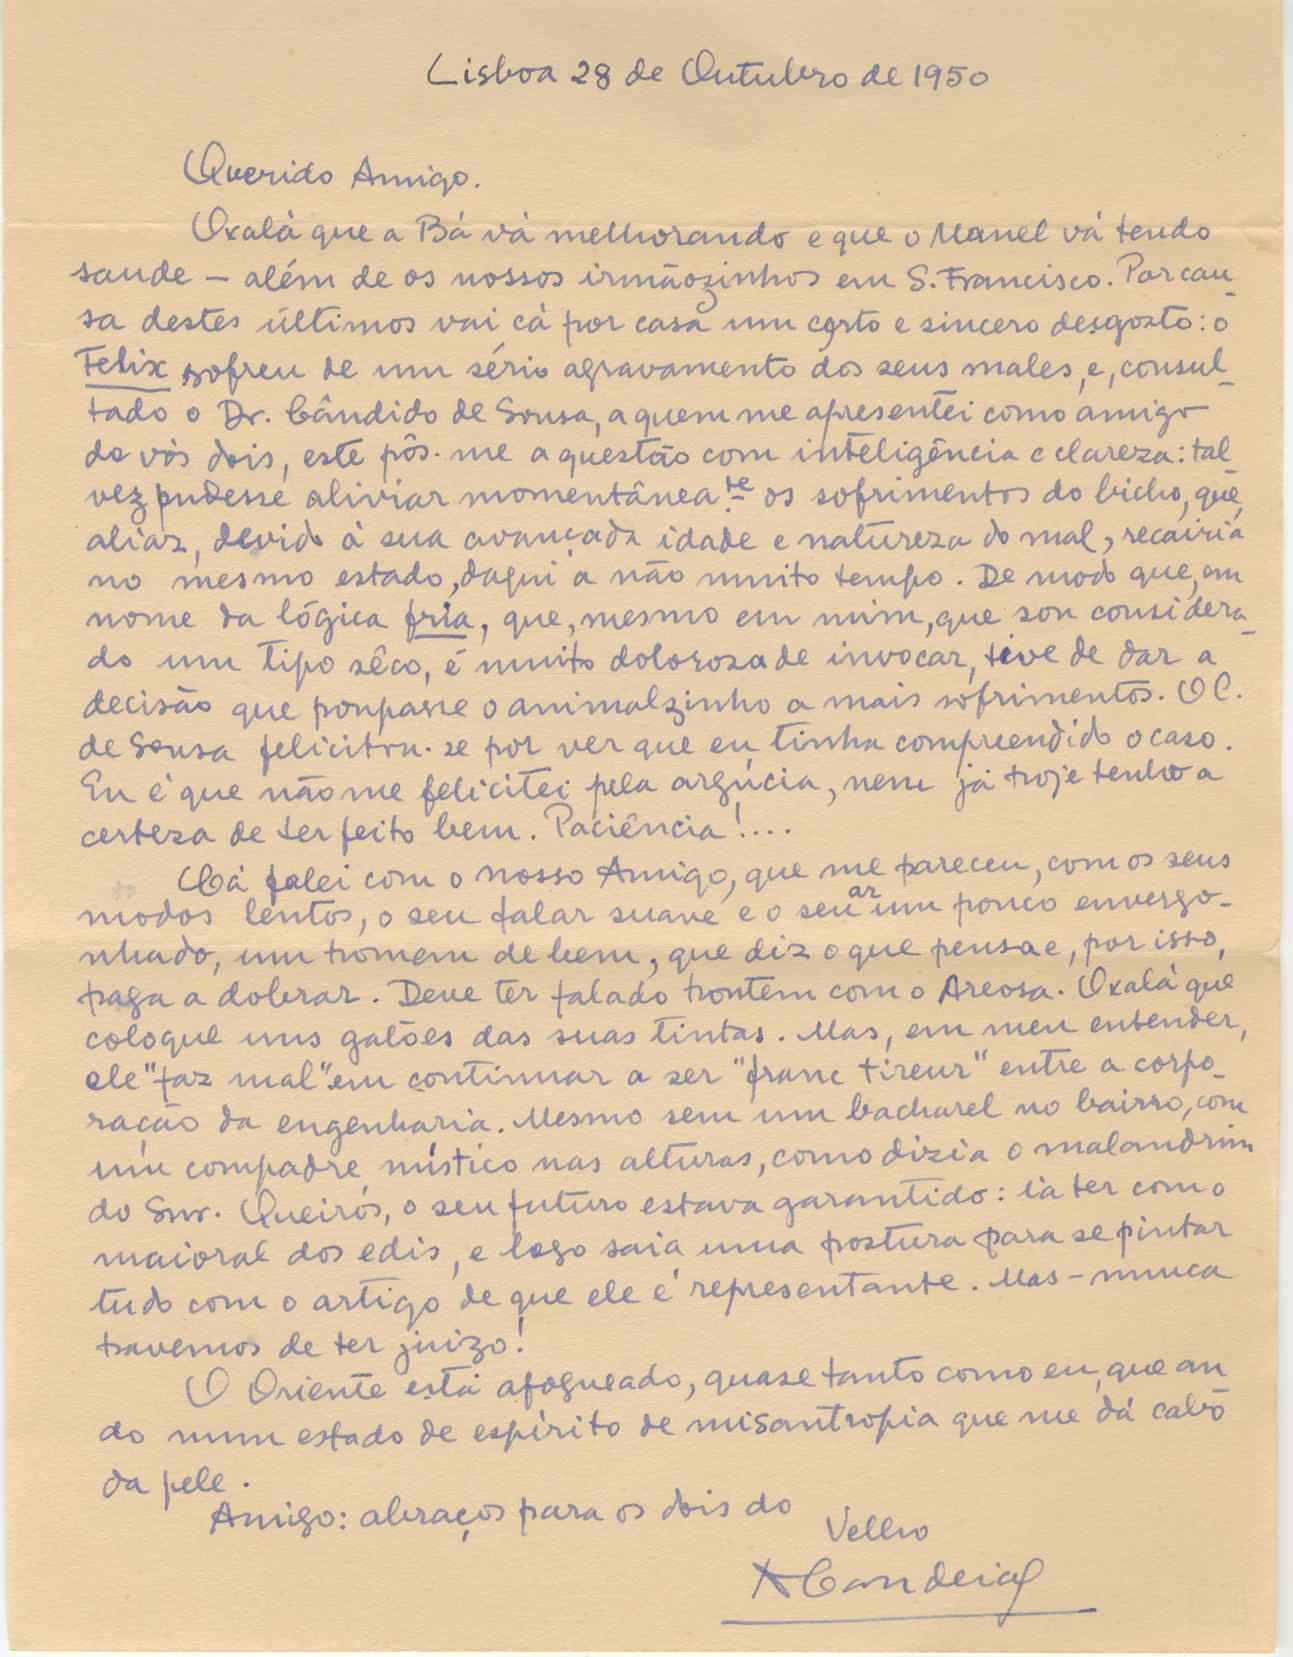 Lisboa 28 de Outubro de 1950
Querido Amigo.
Oxalá que a Bá vá melhorando e que o Manel vá tendo
saude – além de os nossos irmãozinhos em S. Francisco. Por cau-
sa destes últimos vai cá por casa um certo e sincero desgosto: o
Felix sofreu de um sério agravamento dos seus males, e, consul-
tado o Dr. Cândido de Sousa, a quem me apresentei como amigo
de vós dois, este pôs-me a questão com inteligência e clareza: tal-
vez pudesse aliviar momentânea.te os sofrimentos do bicho, que,
aliaz, devido á sua avançada idade e natureza do mal, recairia
no mesmo estado, daqui a não muito tempo. De modo que, em
nome da lógica fria, que, mesmo em mim, que sou considera-
do um tipo sêco, é muito dolorosa de invocar, tive de dar a
decisão que poupasse o animalzinho a mais sofrimentos. O C.
de Sousa felicitou-se por ver que eu tinha compreendido o caso.
Eu é que não me felicitei pela argúcia, nem já hoje tenho a
certeza de ter feito bem. Paciência!....
Cá falei com o nosso Amigo, que me pareceu, com os seus
modos lentos, o seu falar suave e o seu ar um pouco envergo-
nhado, um homem de bem, que diz o que pensa e, por isso,
paga a dobrar. Deve ter falado hontem com o Areosa. Oxalá que
coloque uns galões das suas tintas. Mas, em meu entender,
ele "faz mal" em continuar a ser "franc tireur" entre a corpo-
ração da engenharia. Mesmo sem um bacharel no bairro, com
um compadre místico nas alturas, como dizia o malandrim
do Snr. Queirós, o seu futuro estava garantido: ia ter com o
maioral dos edis, e logo saia uma postura para se pintar
tudo com o artigo de que ele é representante. Mas – nunca
havemos de ter juizo!
O Oriente está afogueado, quase tanto como eu, que an
do num estado de espírito de misantropia que me dá cabo
da pele.
Amigo: abraços para os dois do
Velho
A Candeias